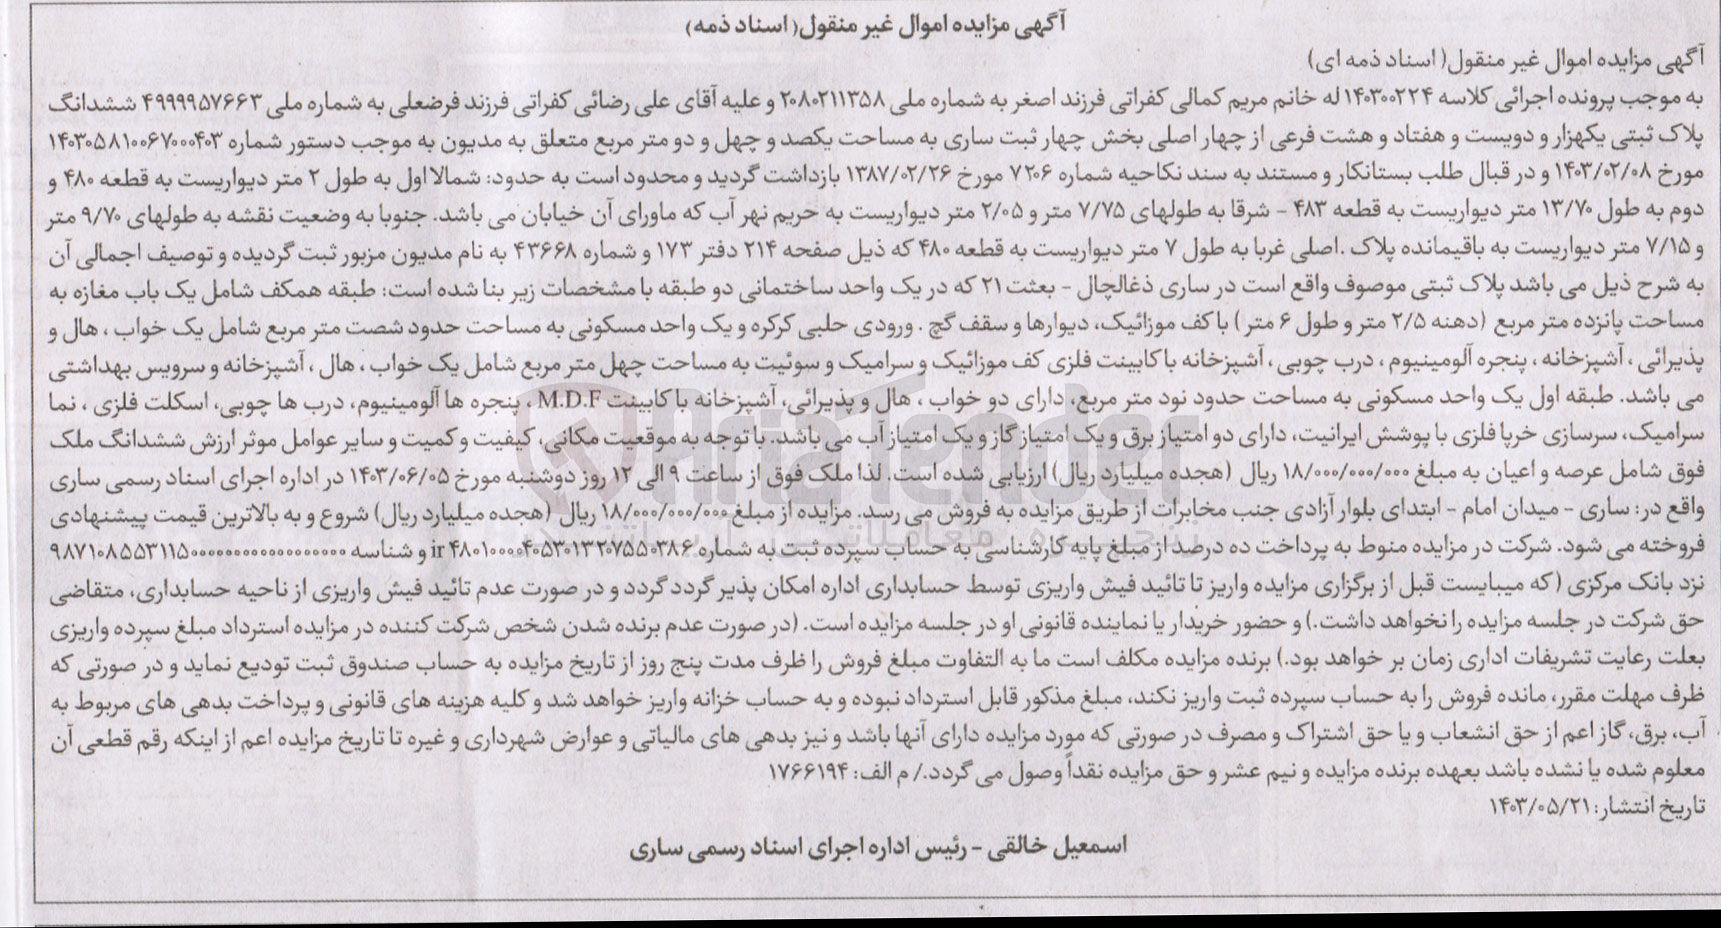 آگهی مزایده اموال غیر منقول( اسناد ذمه)
آگهی مزایده اموال غیر منقول( اسناد ذمه ای)
به موجب پرونده اجرائی کلاسه ۱۴۰۳۰۰۲۲۴ له خانم مریم کمالی کفراتی فرزند اصغر به شماره ملی ۲۰۸۰۲۱۱۳۵۸ و علیه آقای علی رضائی کفراتی فرزند فرضعلی به شماره ملی ۴۹۹۹۹۵۷۶۶۳ ششدانگ
پلاک ثبتی یکهزار و دویست و هفتاد و هشت فرعی از چهار اصلی بخش چهار ثبت ساری به مساحت یکصد و چهل و دو متر مربع متعلق به مدیون به موجب دستور شماره ۱۴۰۳۰۵۸۱۰۰۶۷۰۰۰۴۰۳
مورخ ۱۴۰۳/۰۲/۰۸ و در قبال طلب بستانکار و مستند به سند نکاحیه شماره ۷۲۰۶ مورخ ۱۳۸۷/۰۲/۲۶ بازداشت گردید و محدود است به حدود: شمالا اول به طول ۲ متر دیواریست به قطعه ۴۸۰ و
دوم به طول ۱۳/۷۰ متر دیواریست به قطعه ۴۸۳ - شرقا به طولهای ۷/۷۵ متر و ۲/۰۵ متر دیواریست به حریم نهر آب که ماورای آن خیابان می باشد. جنوبا به وضعیت نقشه به طولهای ۹/۷۰ متر
و ۷/۱۵ متر دیواریست به باقیمانده پلاک .اصلی غربا به طول ۷ متر دیواریست به قطعه ۴۸۰ که ذیل صفحه ۲۱۴ دفتر ۱۷۳ و شماره ۴۳۶۶۸ به نام مدیون مزبور ثبت گردیده و توصیف اجمالی آن
به شرح ذیل می باشد پلاک ثبتی موصوف واقع است در ساری ذغالچال - بعثت ۲۱ که در یک واحد ساختمانی دو طبقه با مشخصات زیر بنا شده است: طبقه همکف شامل یک باب مغازه به
مساحت پانزده متر مربع (دهنه ۲/۵ متر و طول ۶ متر ) با کف موزائیک، دیوارها و سقف گچ . ورودی حلبی کرکره و یک واحد مسکونی به مساحت حدود شصت متر مربع شامل یک خواب ، هال و
پذیرائی ، آشپزخانه ، پنجره آلومینیوم ، درب چوبی ، آشپزخانه با کابینت فلزی کف موزائیک و سرامیک و سوئیت به مساحت چهل متر مربع شامل یک خواب ، هال ، آشپزخانه و سرویس بهداشتی
می باشد. طبقه اول یک واحد مسکونی به مساحت حدود نود متر مربع، دارای دو خواب ، هال و پذیرائی، آشپزخانه با کابینت M.D.F ، پنجره ها آلومینیوم، درب ها چوبی، اسکلت فلزی ، نما
سرامیک، سرسازی خرپا فلزی با پوشش ایرانیت، دارای دو امتیاز برق و یک امتیاز گاز و یک امتیاز آب می باشد. با توجه به موقعیت مکانی، کیفیت و کمیت و سایر عوامل موثر ارزش ششدانگ ملک
فوق شامل عرصه و اعیان به مبلغ ۱۸/۰۰۰/۰۰۰/۰۰۰ ریال (هجده میلیارد ریال) ارزیابی شده است. لذا ملک فوق از ساعت ۹ الی ۱۲ روز دوشنبه مورخ ۱۴۰۳/۰۶/۰۵ در اداره اجرای اسناد رسمی ساری
واقع در: ساری - میدان امام - ابتدای بلوار آزادی جنب مخابرات از طریق مزایده به فروش می رسد. مزایده از مبلغ ۱۸/۰۰۰/۰۰۰/۰۰۰ ریال (هجده میلیارد ریال) شروع و به بالاترین قیمت پیشنهادی
فروخته می شود. شرکت در مزایده منوط به پرداخت ده درصد از مبلغ پایه کارشناسی به حساب سپرده ثبت به شماره ir ۴۸۰۱۰۰۰۰۴۰۵۳۰۱۳۲۰۷۵۵۰۳۸۶ و شناسه
نزد بانک مرکزی ( که میبایست قبل از برگزاری مزایده واریز تا تائید فیش واریزی توسط حسابداری اداره امکان پذیر گردد گردد و در صورت عدم تائید فیش واریزی از ناحیه حسابداری، متقاضی
حق شرکت در جلسه مزایده را نخواهد داشت.) و حضور خریدار یا نماینده قانونی او در جلسه مزایده است. (در صورت عدم برنده شدن شخص شرکت کننده در مزایده استرداد مبلغ سپرده واریزی
بعلت رعایت تشریفات اداری زمان بر خواهد بود.) برنده مزایده مکلف است ما به التفاوت مبلغ فروش را ظرف مدت پنج روز از تاریخ مزایده به حساب صندوق ثبت تودیع نماید و در صورتی که
ظرف مهلت مقرر، مانده فروش را به حساب سپرده ثبت واریز نکند، مبلغ مذکور قابل استرداد نبوده و به حساب خزانه واریز خواهد شد و کلیه هزینه های قانونی و پرداخت بدهی های مربوط به
آب، برق، گاز اعم از حق انشعاب و یا حق اشتراک و مصرف در صورتی که مورد مزایده دارای آنها باشد و نیز بدهی های مالیاتی و عوارض شهرداری و غیره تا تاریخ مزایده اعم از اینکه رقم قطعی آن
معلوم شده یا نشده باشد بعهده برنده مزایده و نیم عشر و حق مزایده نقداً وصول می گردد./ م الف: ۱۷۶۶۱۹۴
تاریخ انتشار: ۱۴۰۳/۰۵/۲۱
اسمعیل خالقی - رئیس اداره اجرای اسناد رسمی ساری
AriaTender